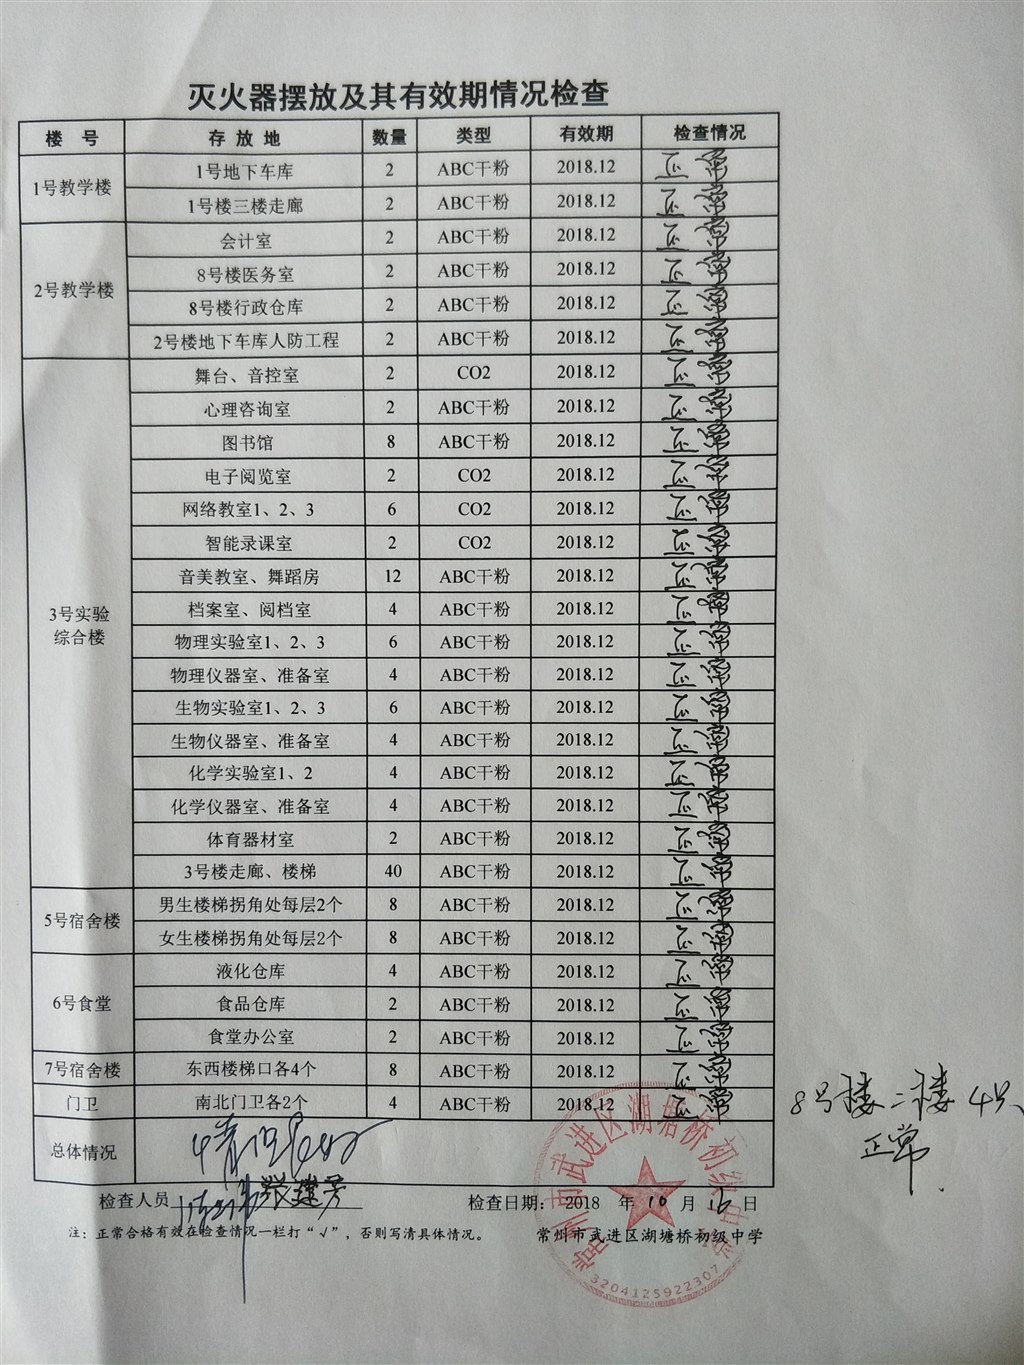 灭火器摆放及其有效期情况检查
楼 号 存 放 地 数量 类型 有效期 检查情况
1号教学楼 1号地下车库 2 ABC干粉 2018.12 正常
1号楼三楼走廊 2 ABC干粉 2018.12 正常
2号教学楼 会计室 2 ABC干粉 2018.12 正常
8号楼医务室 2 ABC干粉 2018.12 正常
8号楼行政仓库 2 ABC干粉 2018.12 正常
2号楼地下车库人防工程 2 ABC干粉 2018.12 正常
3号实验综合楼 舞台、音控室 2 CO2 2018.12 正常
心理咨询室 2 ABC干粉 2018.12 正常
图书馆 8 ABC干粉 2018.12 正常
电子阅览室 2 CO2 2018.12 正常
网络教室1、2、3 6 CO2 2018.12 正常
智能录课室 2 CO2 2018.12 正常
音美教室、舞蹈房 12 ABC干粉 2018.12 正常
档案室、阅档室 4 ABC干粉 2018.12 正常
物理实验室1、2、3 6 ABC干粉 2018.12 正常
物理仪器室、准备室 4 ABC干粉 2018.12 正常
生物实验室1、2、3 6 ABC干粉 2018.12 正常
生物仪器室、准备室 4 ABC干粉 2018.12 正常
化学实验室1、2 4 ABC干粉 2018.12 正常
化学仪器室、准备室 4 ABC干粉 2018.12 正常
体育器材室 2 ABC干粉 2018.12 正常
3号楼走廊、楼梯 40 ABC干粉 2018.12 正常
5号宿舍楼 男生楼梯拐角处每层2个 8 ABC干粉 2018.12 正常
女生楼梯拐角处每层2个 8 ABC干粉 2018.12 正常
6号食堂 液化仓库 4 ABC干粉 2018.12 正常
食品仓库 2 ABC干粉 2018.12 正常
食堂办公室 2 ABC干粉 2018.12 正常
7号宿舍楼 东西楼梯口各4个 8 ABC干粉 2018.12 正常
门卫 南北门卫各2个 4 ABC干粉 2018.12 正常
8号楼二楼4只
正常
总体情况
检查人员 张建芳 检查日期： 2018 年 10 月 16 日
注：正常合格有效在检查情况一栏打“√”，否则写清具体情况。 常州市武进区湖塘桥初级中学
常州市武进区湖塘桥初级中学
3204125922307